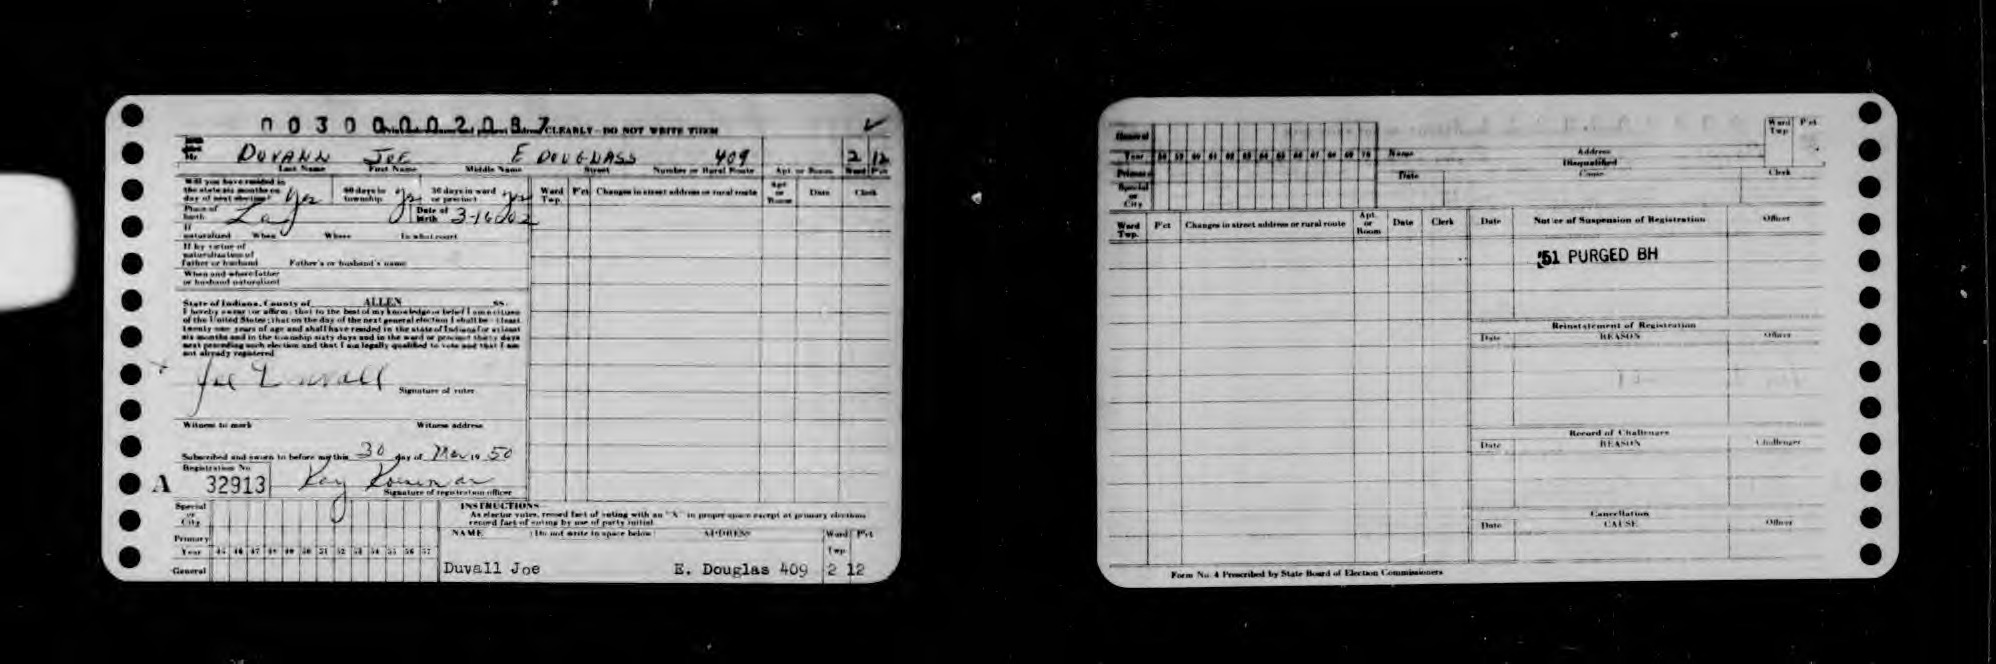 00300002087
CLEARLY - DO NOT WRITE THEM
Mr. DUVALL JOE E DOUGLASS 409 2 12
Last Name First Name Middle Name Street Number or Rural Route Apt. or Room Ward Pct
Will you have resided in the state six months on day of next election? Yes 60 days in township Yes 30 days in ward or precinct Yes
Ward Twp. P'ct Changes in street address or rural route Apt. or Room Date Clerk
Place of birth Date of birth 3-16-02
If naturalized When Where In what court
If by virtue of naturalization of father or husband Father's or husband's name
When and where father or husband naturalized
State of Indiana, County of ALLEN ss.
I hereby swear (or affirm) that to the best of my knowledge or belief I am a citizen
of the United States; that on the day of the next general election I shall be at least
twenty-one years of age and shall have resided in the state of Indiana for at least
six months and in the township sixty days and in the ward or precinct thirty days
next preceding such election and that I am legally qualified to vote and that I am
not already registered
Joe Duvall
Signature of voter
Witness to mark Witness address
Subscribed and sworn to before me this 30 day of Mar 19 50
Registration No.
A 32913 Ray
Signature of registration officer
Special or City
Primary
Year 45 46 47 48 49 50 51 52 53 54 55 56 57
General
INSTRUCTIONS
As elector votes, record fact of voting with an "X" in proper space except at primary elections
record fact of voting by use of party initial
NAME (Do not write in space below) ADDRESS Ward Twp P'ct
Duvall Joe E. Douglas 409 2 12
General
Year 58 59 60 61 62 63 64 65 66 67 68 69 70
Primary
Special or City
Name Address Ward Twp P'ct
Disqualified
Date Cause Clerk
Ward Twp. P'ct Changes in street address or rural route Apt. or Room Date Clerk
Date Notice of Suspension of Registration Officer
'51 PURGED BH
Reinstatement of Registration
Date REASON Officer
Record of Challenges
Date REASON Challenger
Cancellation
Date CAUSE Officer
Form No. 4 Prescribed by State Board of Election Commissioners